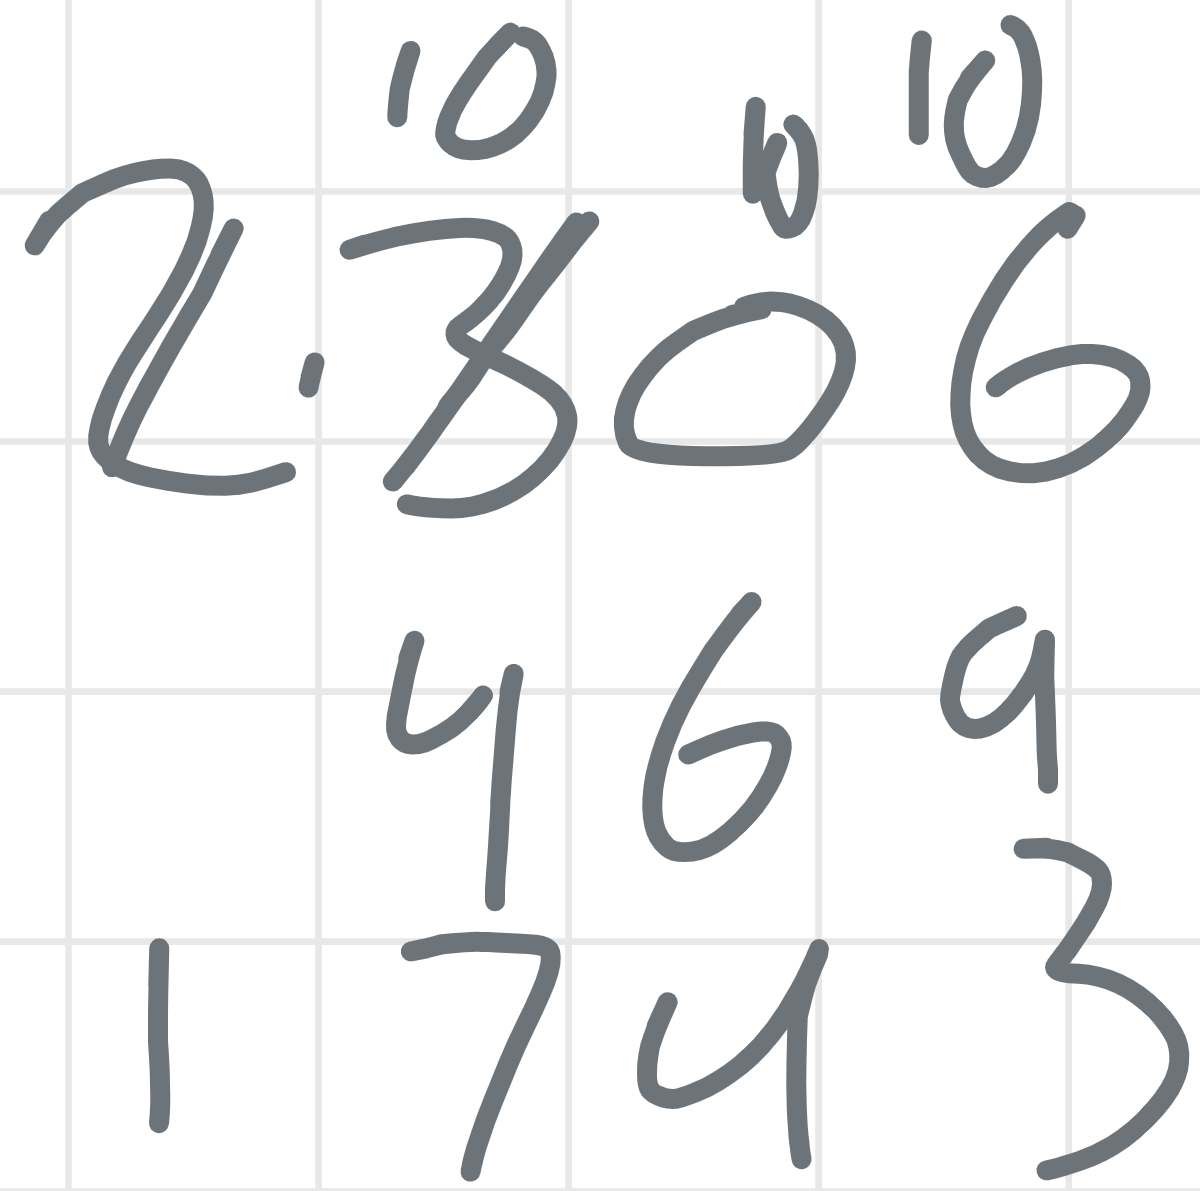 10 10 10
2.306
469
1743